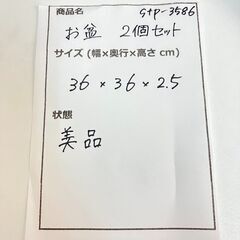 商品名 gtp-3586
お盆 2個セット
サイズ (幅×奥行×高さ cm)
36 × 36 × 2.5
状態
美品